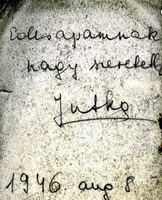 Édesapámnak
nagy szeretettel
Jutka
1946. aug 8.